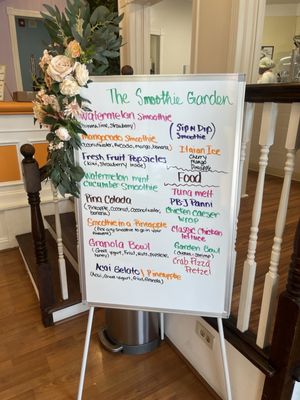 The Smoothie Garden
Watermelon Smoothie
(Banana, lime, Strawberry)
Mangonada Smoothie
(Coconut water, Avocado, Mango, banana)
Fresh Fruit Popsicles
(Kiwi, Strawberry inside)
Watermelon mint
cucumber Smoothie
Pina Colada
(Pineapple, Coconut, Coconut water,
banana)
Smoothie in a Pineapple
(Pick any smoothie to go in your
Pineapple)
Granola Bowl
(Greek yogurt, Fruit, Nuts,
honey)
Acai Gelato / Pineapple
(Acai, Greek yogurt,
(Sip N Dip)
Smoothie
Italian Ice
Cherry
Mango
Food
Tuna melt
PB&J Panni
Chicken Caeser
wrap
Classic Chicken
lettuce
Garden Bowl
Crab Pizza
Pretzel